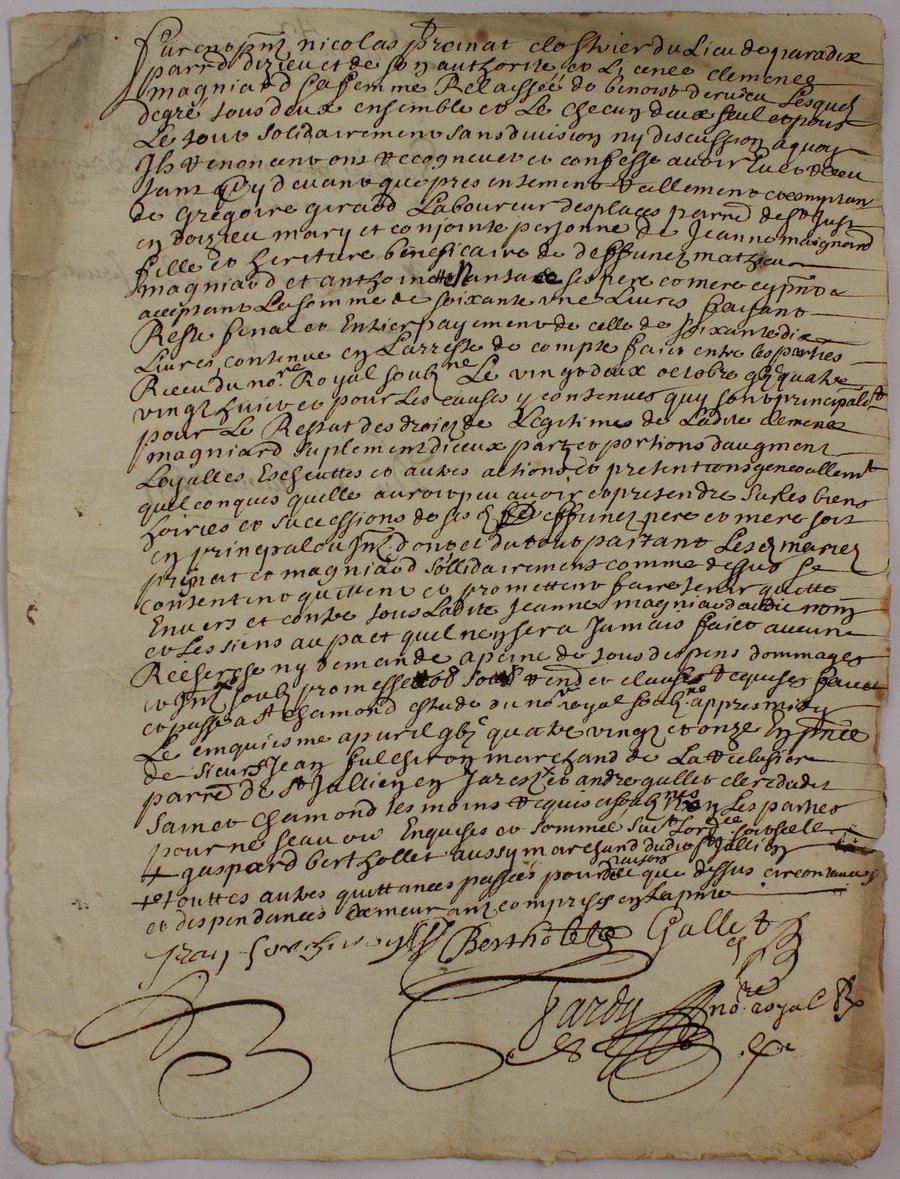 Furent pnt nicolas preinat clostrier du Lieu de paradix
parre dizieu et de son authorite et Licence clemence
magniard sa femme Relaissée de benoist dervieu Lesquelz
degré tous deux ensemble et Le checun deux seul et pour
Le tout solidairement sans division ny discussion a quoy
Ils Renoncent ont Recogneu et et confesse avoir Eu et Receu
tant cy devant que presentement Reallement et comptan
de Grégoire giraud Laboureur des places parre de st Just
en doizieu mary et conjointe personne de Jeanne maignard
fille et heritiere béneficaire de deffunctz mathieu
magniard et anthoinette ses pere et mere cy pnt
acceptant La somme de soixante une Livres faisant
Reste final et Entier payement de celle de soixante dix
Livres contenue en L'arreste de compte faict entre les parties
Receu du nore Royal soubne Le vingt deux octobre gbjc quatre
vingt huict et pour Les causes y contenues quy sont principalet
pour Le Restat des droictz de Légitimes de Ladite clemence
magniard suplement diceux partz et portions d'augment
Loyalles Escheuttes et autres actions et pretentions generallemt
quelconques quelle auroit peu avoir et pretendre sur les biens
hoiries et sucessions de ses dz deffunctz pere et mere soit
en principal ou Intz dont et du tout partant Les dz mariez
preinat et magniard sollidairement comme dessus se
contentent quittent et promettent faire tenir quitte
Envers et contre tous Ladite Jeanne magniard audit nom
et Les siens au pact quel ney sera Jamais faict aucune
Recherche ny demande a peine de tous despens dommages
et Intz soubz promesse obl soub Rend et clauses Requises faict
et passe a st chamond estude du nore royal soubne appres midy
Le cinquiesme apvril gbjc quatre vingtz et onze En pnce
de sieurs Jean fulchiron marchand de La
parre de st Jullien en Jarestz et andre gallet clerc dudit
sainct chamond tesmoins Requis et soubnes non Les parties
pour ne scavoir Enquises et sommé suivt Lordce
+ gaspard berthollet aussy marchand dudit st Jullien
+ et touttes autres quittances passées pour Raison de ce que dessus circontances
et despendances demeurant comprises en La pnte
Berthollet Gallet
Jardy nore royal